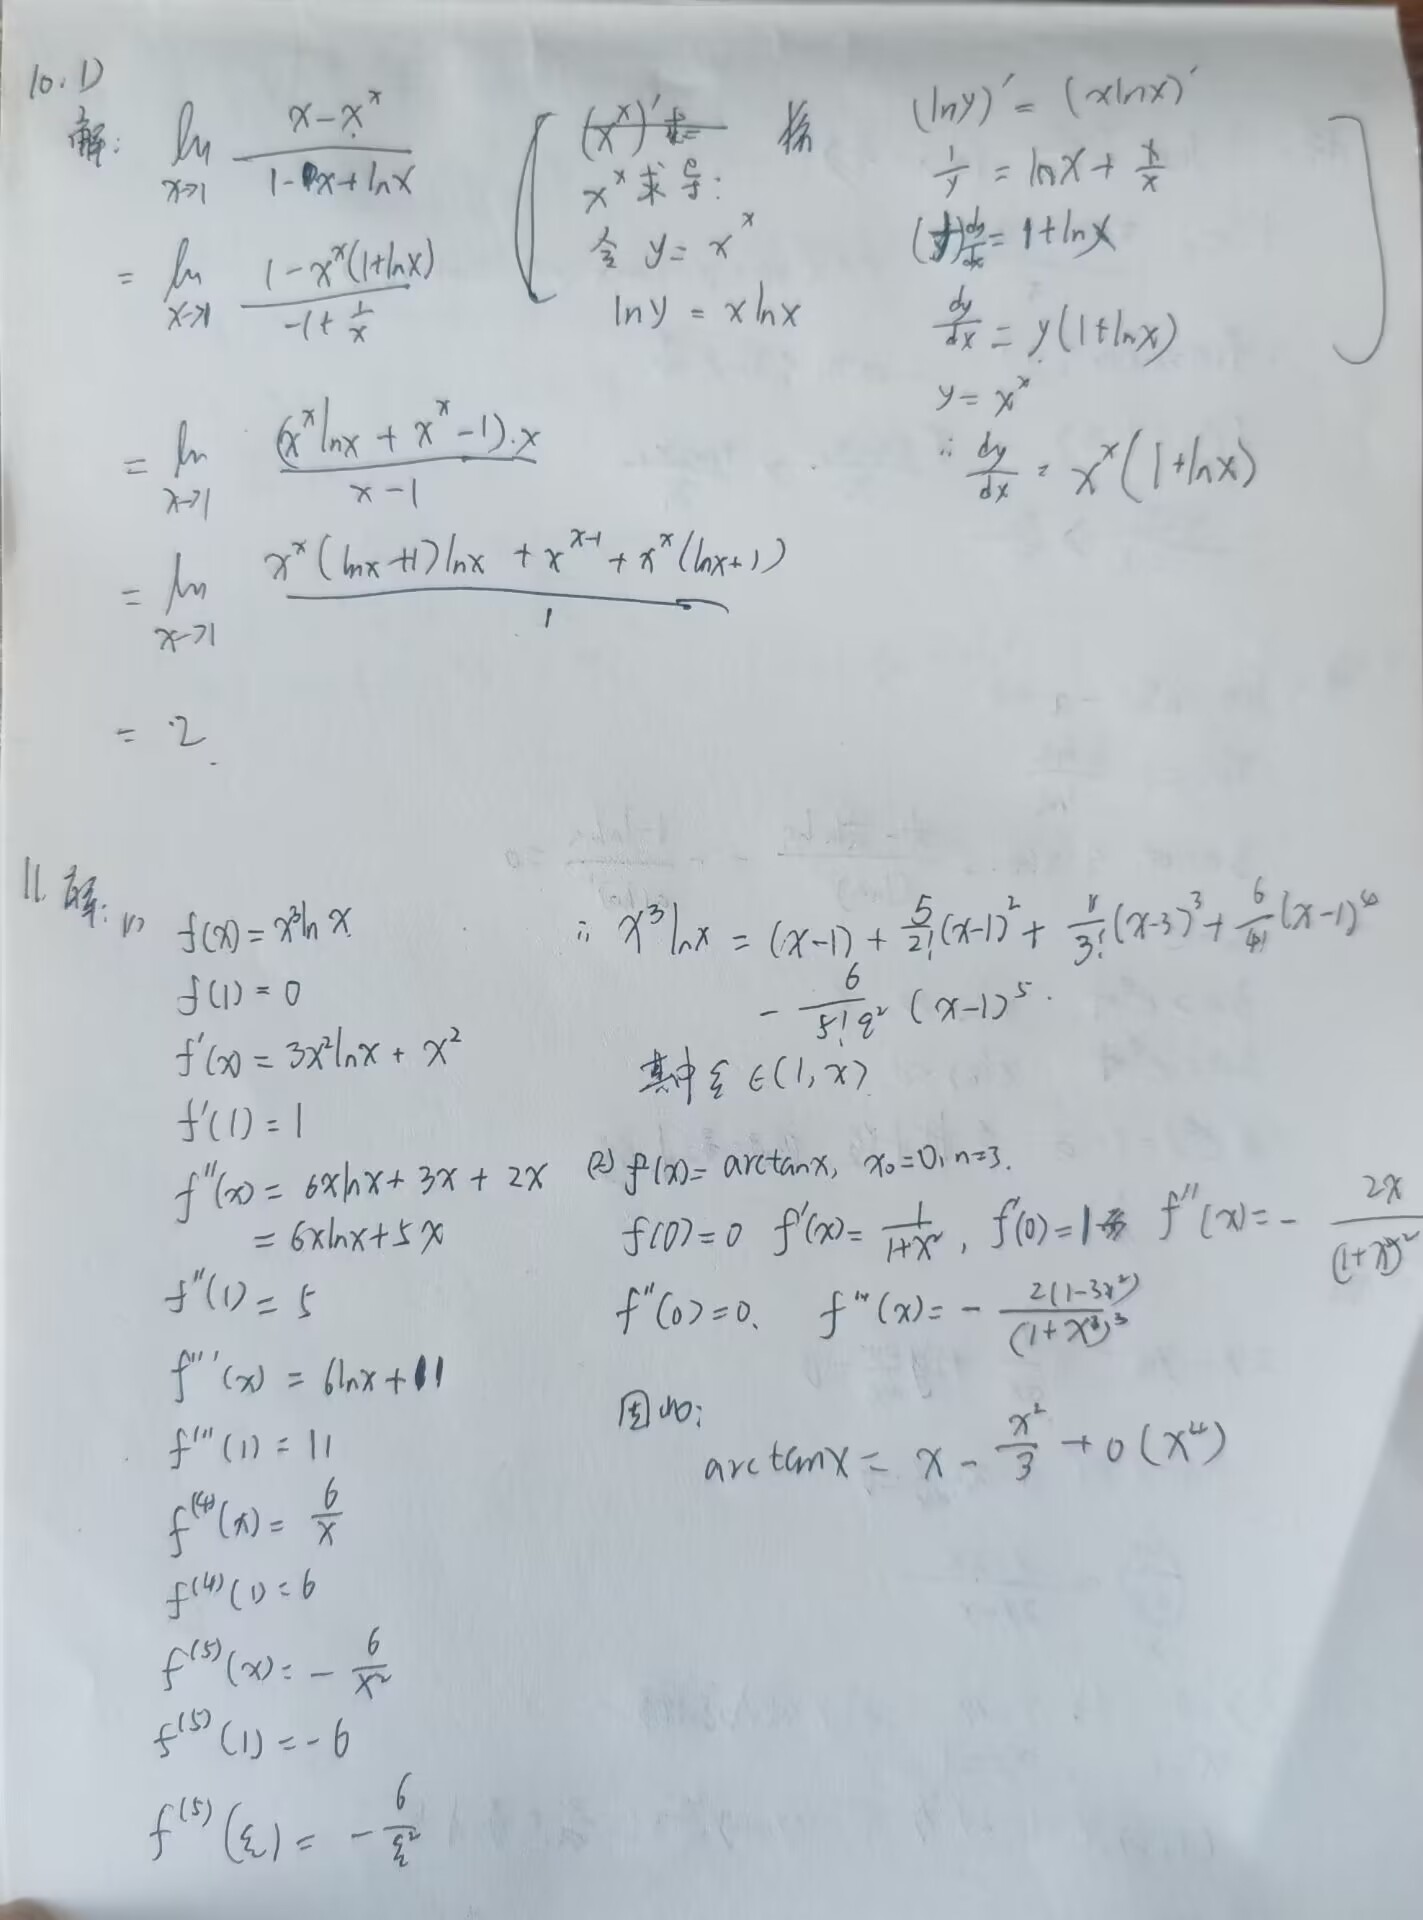 10. 1)
解: lim x→1 (x-x^x)/(1-x+lnx)
= lim x→1 (1-x^x(1+lnx))/(-1+1/x)
= lim x→1 ((x^x lnx + x^x -1)·x)/(x-1)
= lim x→1 (x^x(lnx+1)lnx + x^(x-1) + x^x(lnx+1))/1
= 2.
x^x求导:
令 y = x^x
lny = xlnx
(lny)' = (xlnx)'
1/y = lnx + x/x
dy/dx = 1+lnx
dy/dx = y(1+lnx)
y = x^x
∴ dy/dx = x^x(1+lnx)
11. 解: (1)
f(x) = x³ln x
f(1) = 0
f'(x) = 3x²lnx + x²
f'(1) = 1
f''(x) = 6xlnx + 3x + 2x
= 6xlnx+5x
f''(1) = 5
f'''(x) = 6lnx+11
f'''(1) = 11
f^(4)(x) = 6/x
f^(4)(1) = 6
f^(5)(x) = - 6/x²
f^(5)(1) = -6
f^(5)(ξ) = - 6/ξ²
∴ x³lnx = (x-1) + 5/2!(x-1)² + 11/3!(x-3)³ + 6/4!(x-1)⁴
- 6/(5!ξ²) (x-1)⁵.
其中ξ∈(1,x)
(2) f(x) = arctanx, x₀=0, n=3.
f(0)=0 f'(x)= 1/(1+x²), f'(0)=1 f''(x)= - 2x/(1+x²)²
f''(0)=0. f'''(x)= - 2(1-3x²)/(1+x²)³
因此:
arctanx = x - x²/3 + o(x⁴)